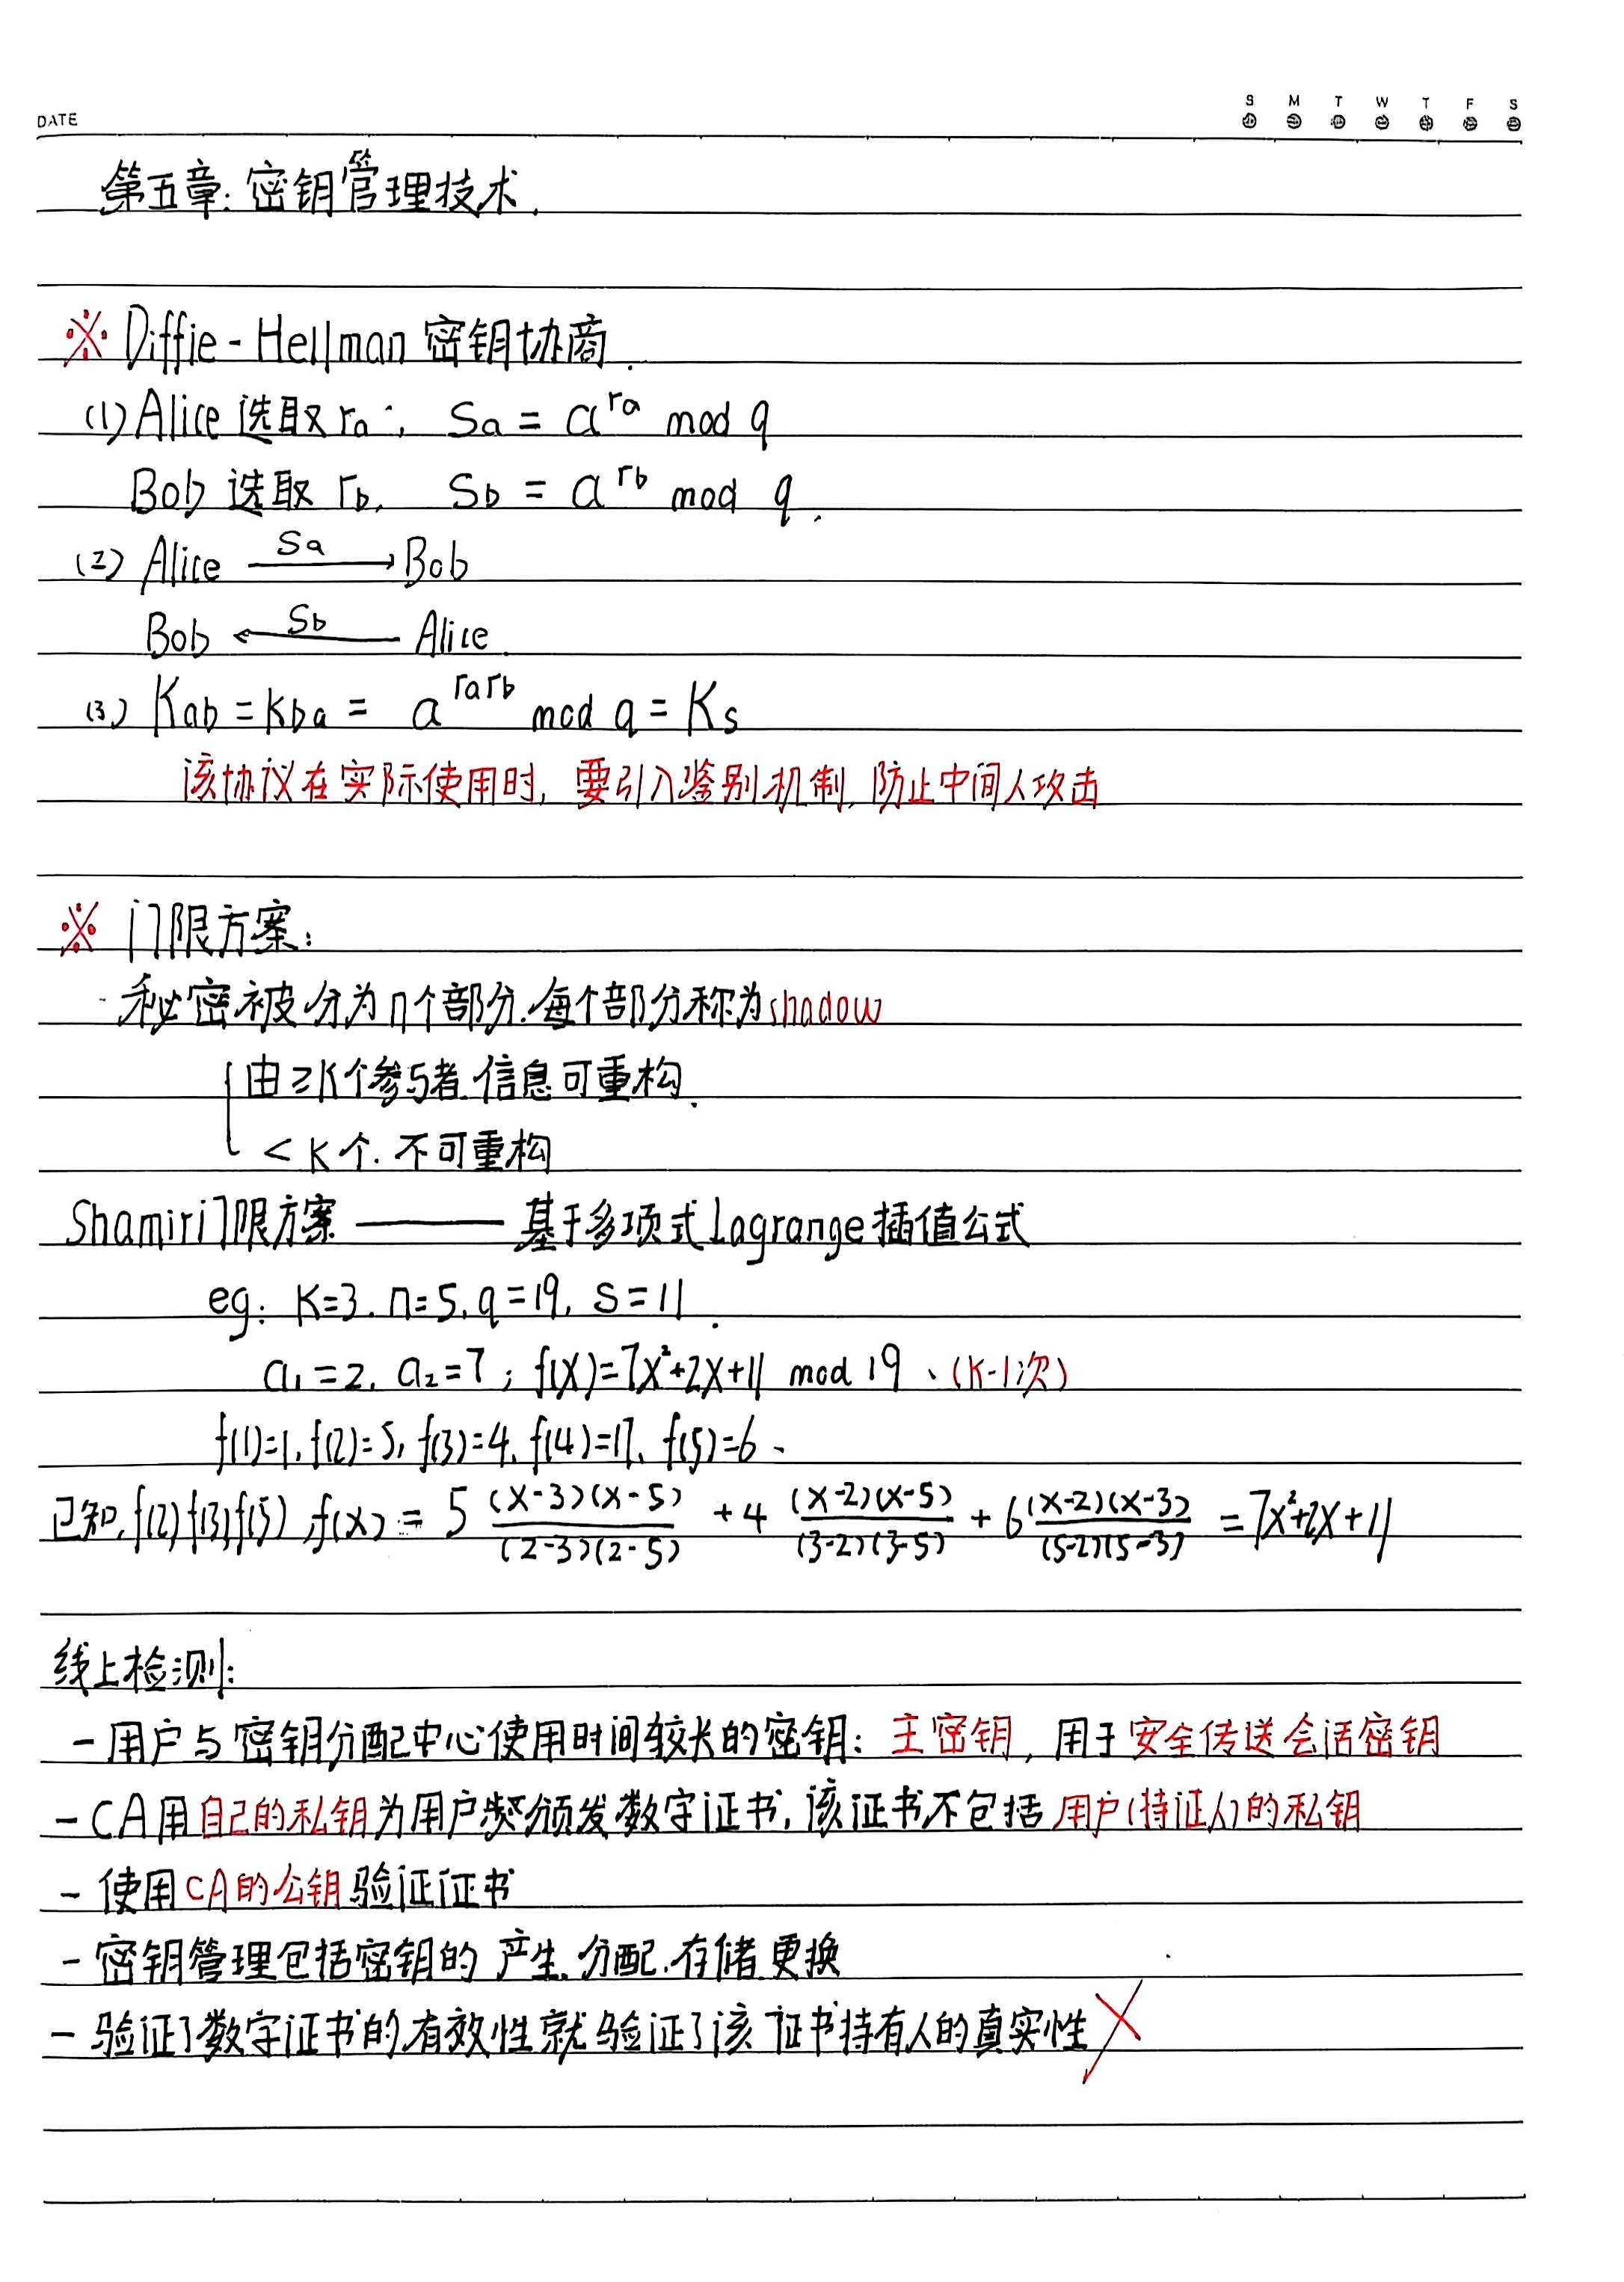 DATE
S M T W T F S
第五章:密钥管理技术.
※ Diffie-Hellman 密钥协商.
(1) Alice 选取 ra; Sa = a^ra mod q
Bob 选取 rb, Sb = a^rb mod q.
(2) Alice —Sa→ Bob
Bob ←Sb— Alice.
(3) Kab = Kba = a^rarb mod q = Ks
该协议在实际使用时, 要引入鉴别机制, 防止中间人攻击
※ 门限方案:
- 秘密被分为n个部分.每个部分称为shadow
由≥K个参与者.信息可重构.
<K个.不可重构
Shamir门限方案 —— 基于多项式Lagrange插值公式
eg: K=3. n=5, q=19, s=11.
a₁=2, a₂=7; f(x)=7x²+2x+11 mod 19、(K-1次)
f(1)=1, f(2)=5, f(3)=4, f(4)=17, f(5)=6、
已知,f(2)f(3)f(5),f(x) = 5 (x-3)(x-5)/(2-3)(2-5) + 4 (x-2)(x-5)/(3-2)(3-5) + 6 (x-2)(x-3)/(5-2)(5-3) = 7x²+2x+11
线上检测:
- 用户与密钥分配中心使用时间较长的密钥: 主密钥, 用于安全传送会话密钥
- CA用自己的私钥为用户颁发数字证书, 该证书不包括用户(持证人)的私钥
- 使用CA的公钥验证证书
- 密钥管理包括密钥的 产生.分配.存储.更换
- 验证了数字证书的有效性就验证了该证书持有人的真实性 ×